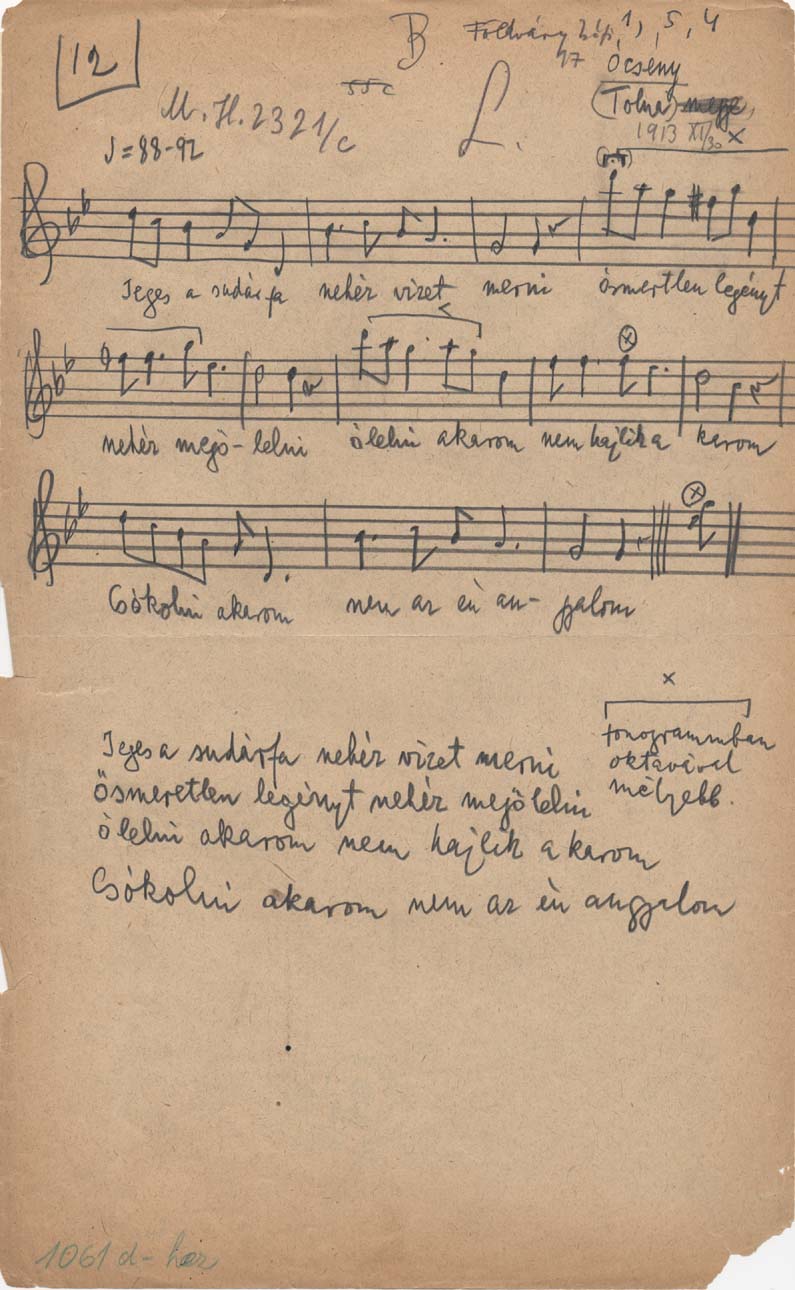 12
B
1, 5, 4
Öcsény
M. H. 2321/c
L.
(Tolna) megye,
1913 XI/30 ×
♩ = 88-92
Jeges a sudárfa nehéz vizet merni ösmertlen legényt
nehéz mejö-lelni ölelni akarom nem hajlik a karom
Csókolni akarom nem az én an- gyalom
×
Jeges a sudárfa nehéz vizet merni
fonogrammban
Ösmeretlen legényt nehéz mejölelni
oktávával
mélyebb.
ölelni akarom nem hajlik a karom
Csókolni akarom nem az én angyalom
1061 d-hez